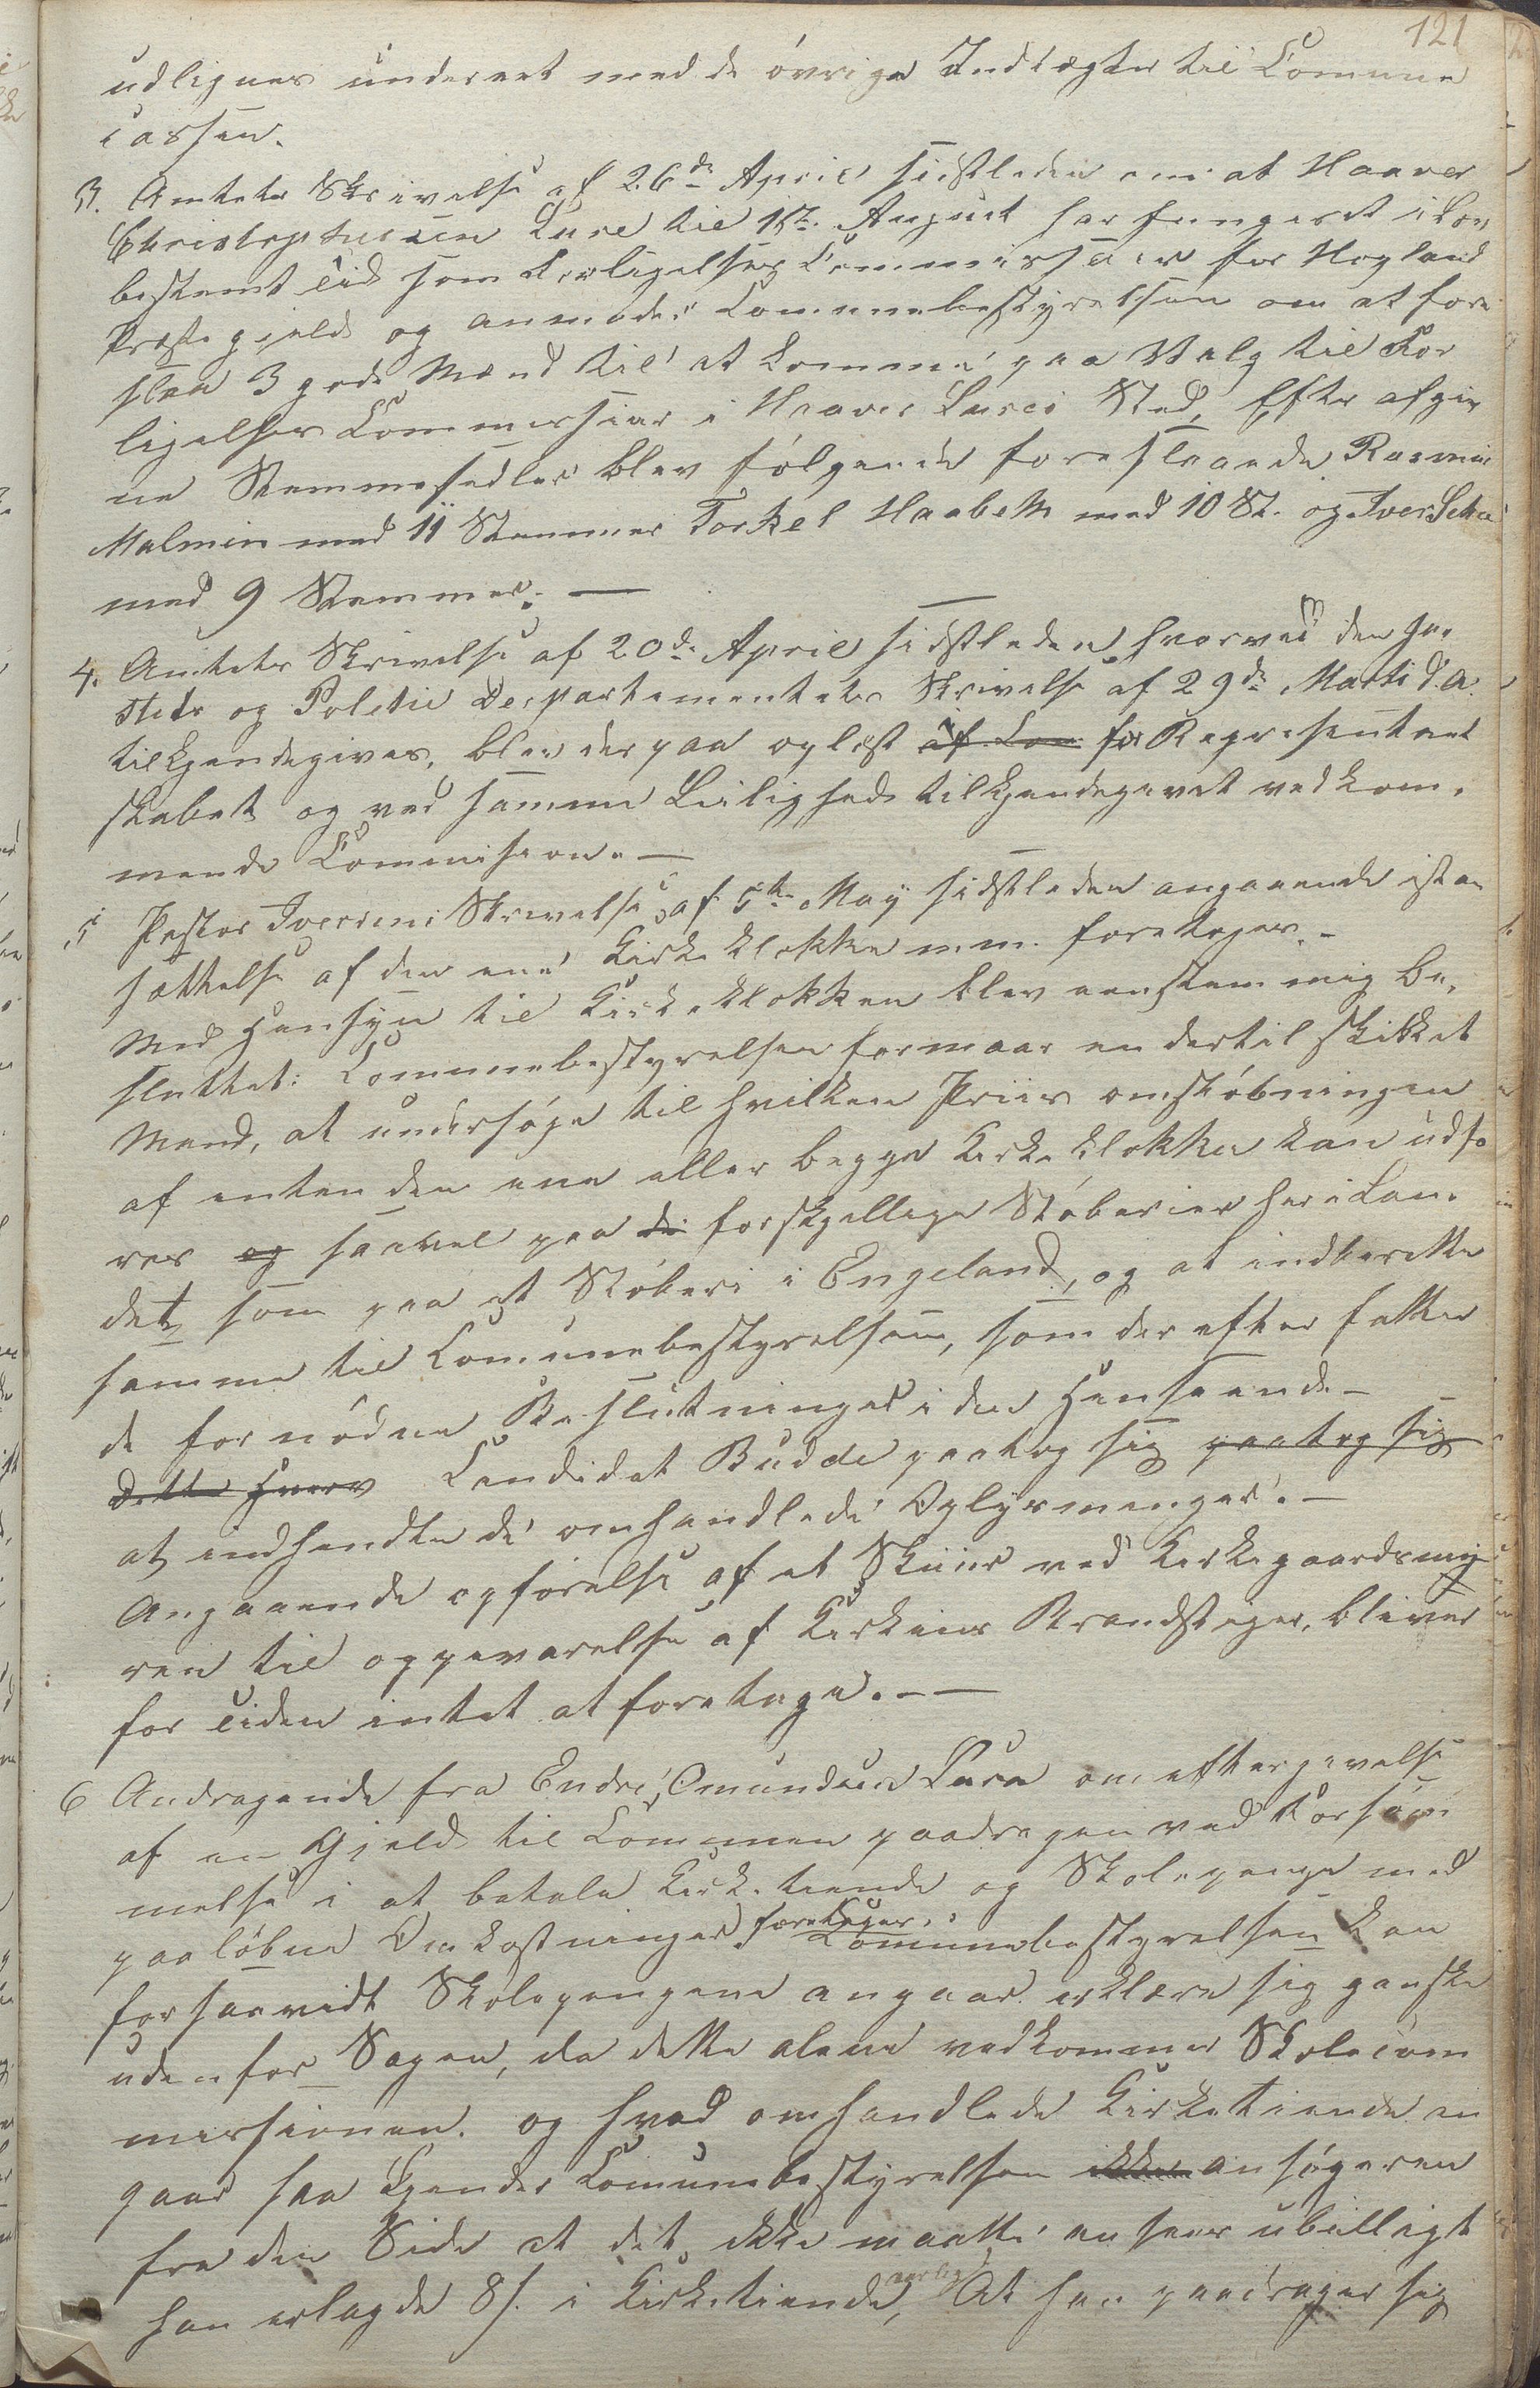 121
udlignes undereet med de övrige Indtægter til Commune
cassen.
3. Amtets Skrivelse af 26de April sidstleden om at Haaver
Christophersen Lure til 15te August har fungeret i Lov
bestemt Tid som Forligelses Commissair for Hogland
Præstegjeld og anmoder Communebestyrelsen om at fore
slaa 3 gode Mænd til at komme paa Valg til For
ligelses Commissair i Haaver Lures Sted, Efter afgiv
ne Stemmesedler blev fölgende foreslaaede Rasmus
Malmin med 11 Stemmer Torkel Haabeth med 10 St. og Iver
med 9 Stemmer. —
4. Amtets Skrivelse af 20de April sidstleden hvorved den Ju-
stits og Politie Departementets Skrivelse af 29de Marti d. A.
tilkjendegives, blev derpaa oplæst af Com for Repræsentant
skabet og ved samme Leilighed tilkjendegivet vedkom-
mende Commission. —
5 Pastor Iversens Skrivelse af 5te May sidstleden angaaende istand
sættelse af den ene Kirkeklokke m.m. foretoges. -
Med Hensyn til Kirkeklokken blev eenstemmig be-
sluttet: Communebestyrelsen formaar en dertil skikket
Mand, at undersöge til hvilken Priis omstöbningen
af enten den ene eller begge Kirkeklokker kan udfö
res og saavel paa de forskjellige Stöberier her i Lan-
det som paa et Stöberi i Engeland, og at indberette
samme til Communebestyrelsen, som derefter fatter
de fornödne Beslutninger i den Henseende -
Dette Hverv Candidat Budde paatog sig paatog sig
at indhendte de omhandlede Oplysninger. —
Angaaende opförelse af et Skuur ved Kirkegaardsmu
ren til oppevarelse af Kirkens Brandstiger, bliver
for Tiden intet at foretage. — —
6 Andragende fra Endre Omundsen Lura om eftergivelse
af en Gjeld til Communen paadragen ved Forsöm
melse i at betale Kirketiende og Skolepenge med
paalöbne Omkostninger foretoges. Communebestyrelsen kan
forsaavidt Skolepengene angaar erklære sig ganske
udenfor Sagen, da dette alene vedkommer Skolecom
missionen. og hvad omhandlede Kirketiende an
gaar saa kjender Communebestyrelsen ikke ansögeren
fra den Side at det ikke maatte ansees ubilligt
han erlagde 8 s. i Kirketiende aarlig, At han paadrager sig